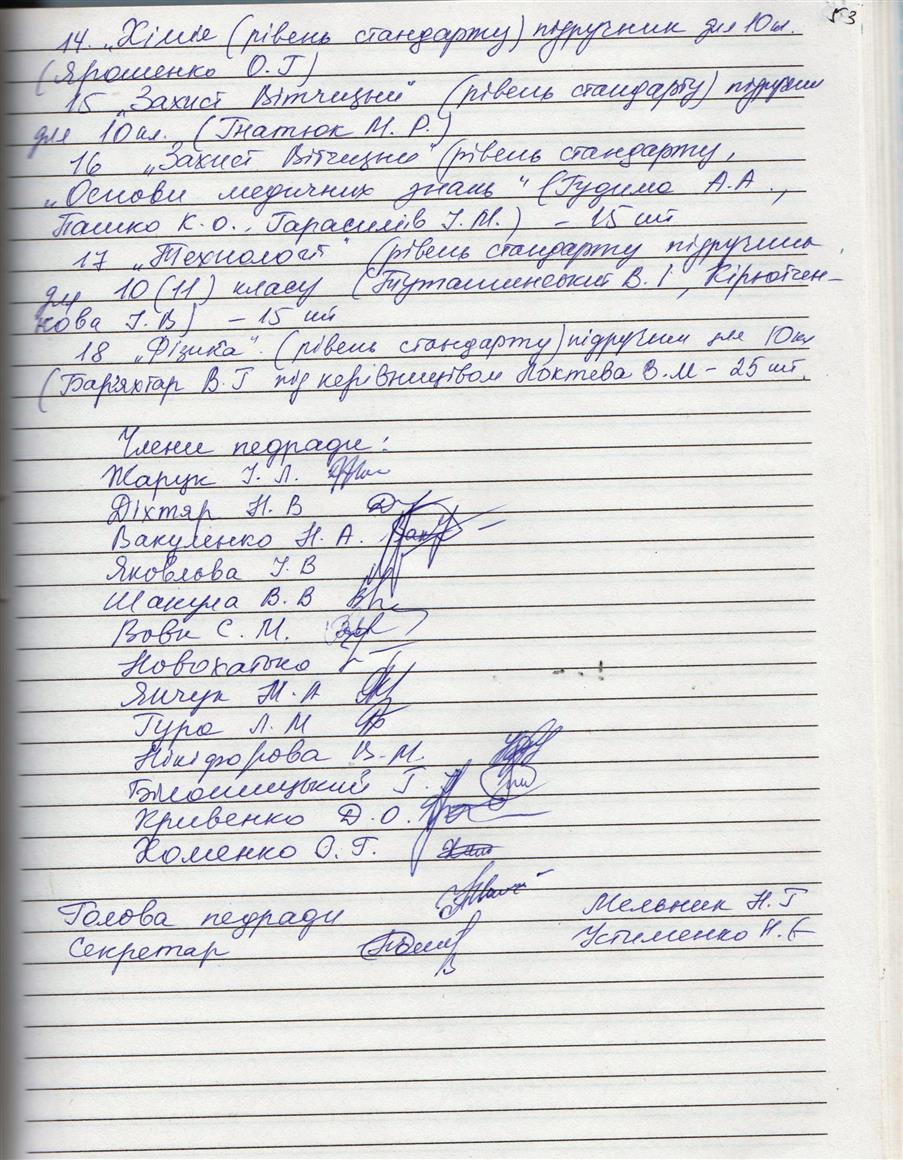 53
14. „Хімія (рівень стандарту) підручник для 10 кл.
(Ярошенко О.Г)
15 „Захист Вітчизни" (рівень стандарту) підручник
для 10 кл. (Гнатюк М. Р.)
16 „Захист Вітчизни" (рівень стандарту,
„Основи медичних знань" (Гудима А.А.,
Пашко К.О., Гарасимів І.М.) – 15 шт
17 „Технології" (рівень стандарту підручник
для 10 (11) класу (Туташинський В.І, Кірютчен-
кова І.В) – 15 шт
18 „Фізика". (рівень стандарту) підручник для 10 кл
(Бар'яхтар В.Г під керівництвом Локтєва В.М – 25 шт.
Члени педради:
Жарук І. Л.
Діхтяр Н. В
Вакуленко Н. А.
Яковлова І. В
Шакула В. В
Вовк С. М.
Новохатько
Янчук Н. А
Гура Л. М
Нікіфорова В. М.
Білошицький Г.
Кривенко Д. О.
Хоменко О. Г.
Голова педради Мельник Н. Г
Секретар Устименко Н. Є